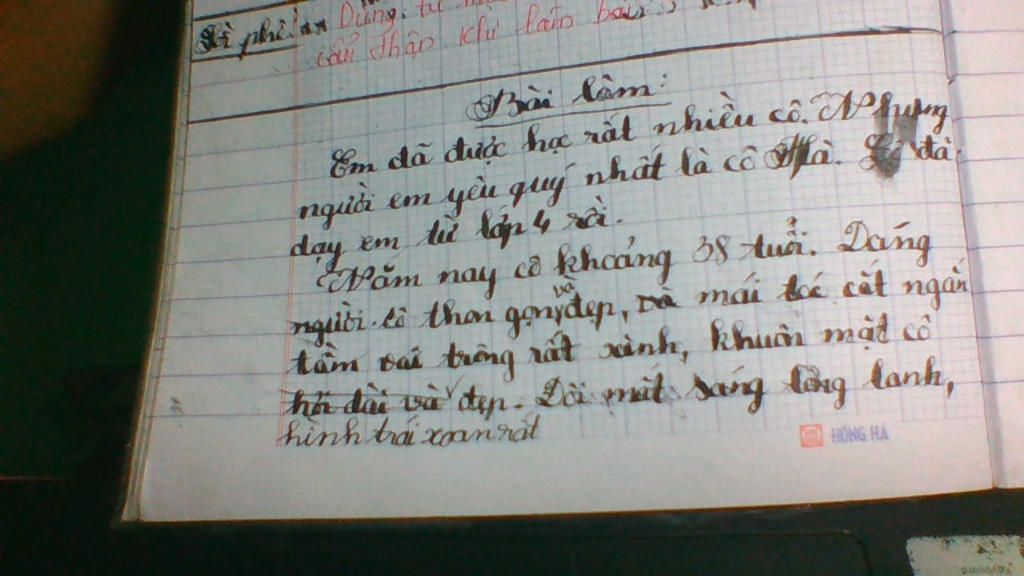 phê: Dùng từ
cẩn thận khi làm bài
Bài làm:
Em đã được học rất nhiều cô. Nhưng
người em yêu quý nhất là cô Hà. Cô đã
dạy em từ lớp 4 rồi.
Năm nay cô khoảng 38 tuổi. Dáng
người cô thon gọn, và đẹp, và mái tóc cắt ngắn
tầm vai trông rất xinh, khuôn mặt cô
hơi dài và đẹp. Đôi mắt sáng lông lanh,
hình trái xoan rất
HỒNG HÀ